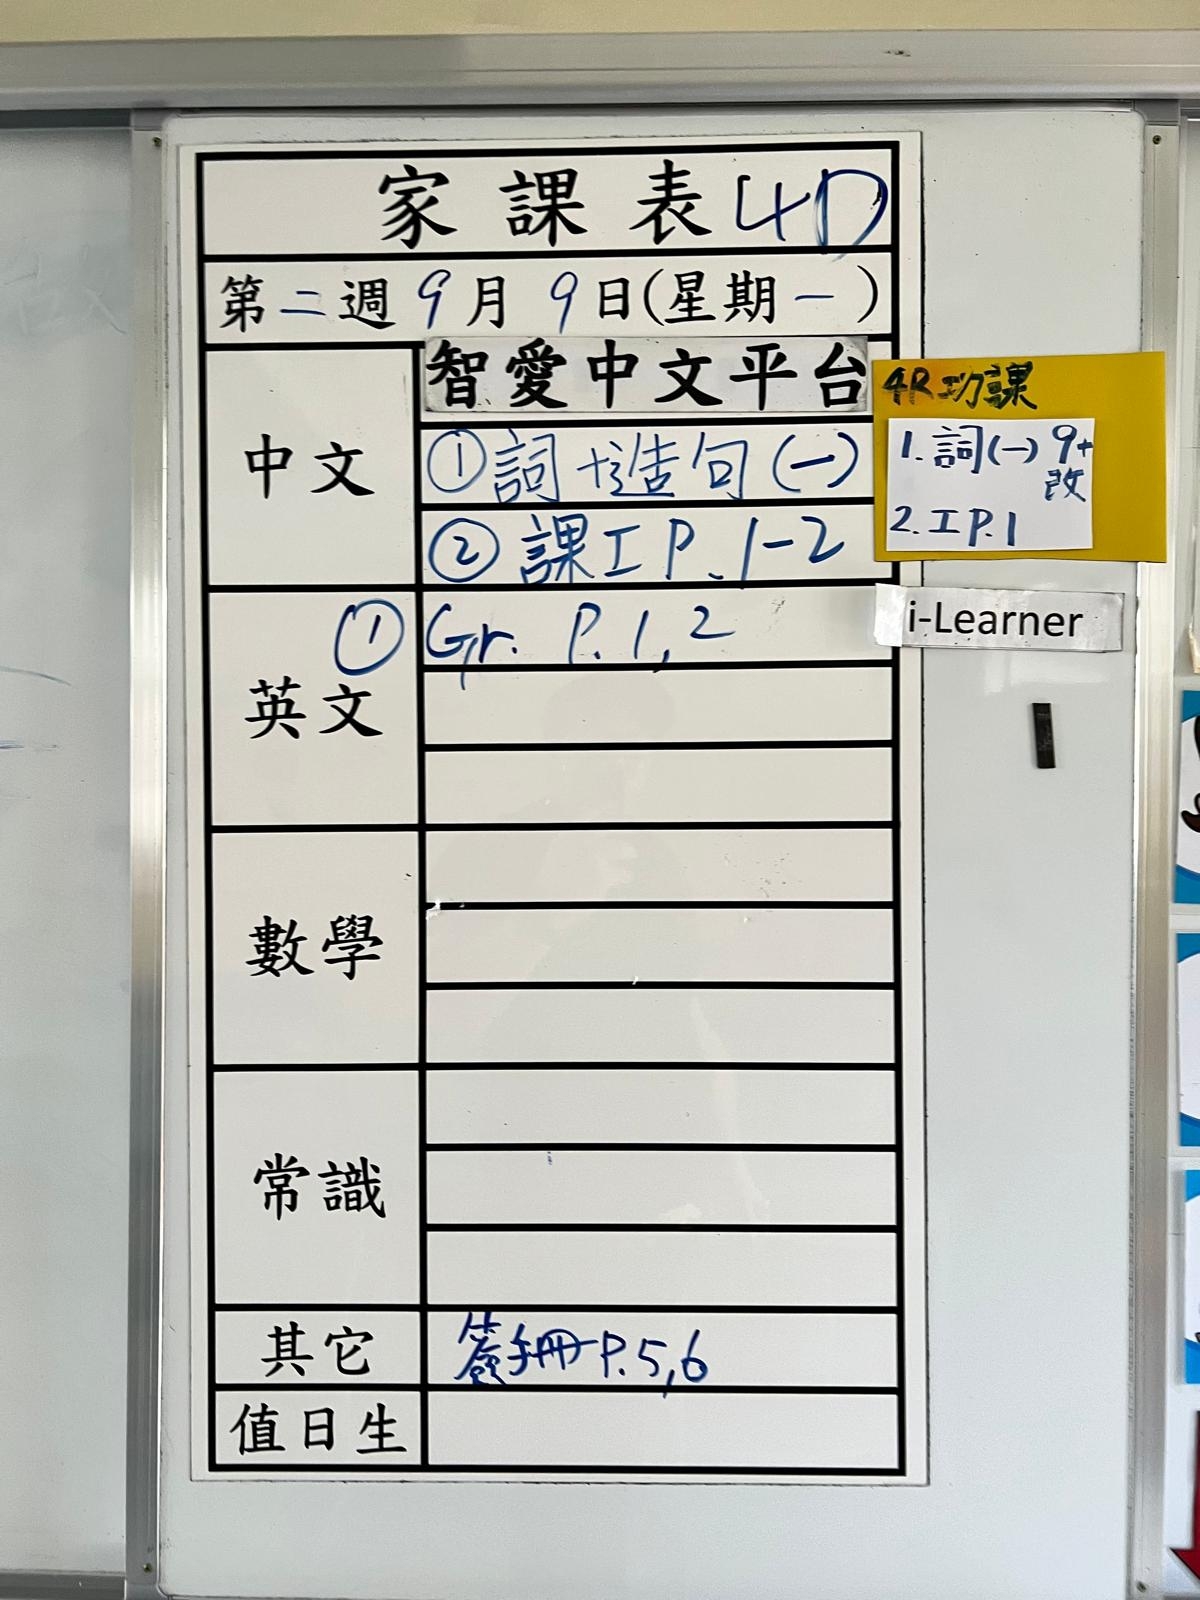 家課表 4D
第二週 9月 9日(星期一)
中文
智愛中文平台
①詞+造句(一)
②課工P.1-2
4R功課
1.詞(一) 9+
改
2.工P.1
英文
① Gr. P.1,2
i-Learner
數學
常識
其它
簽手冊P.5,6
值日生